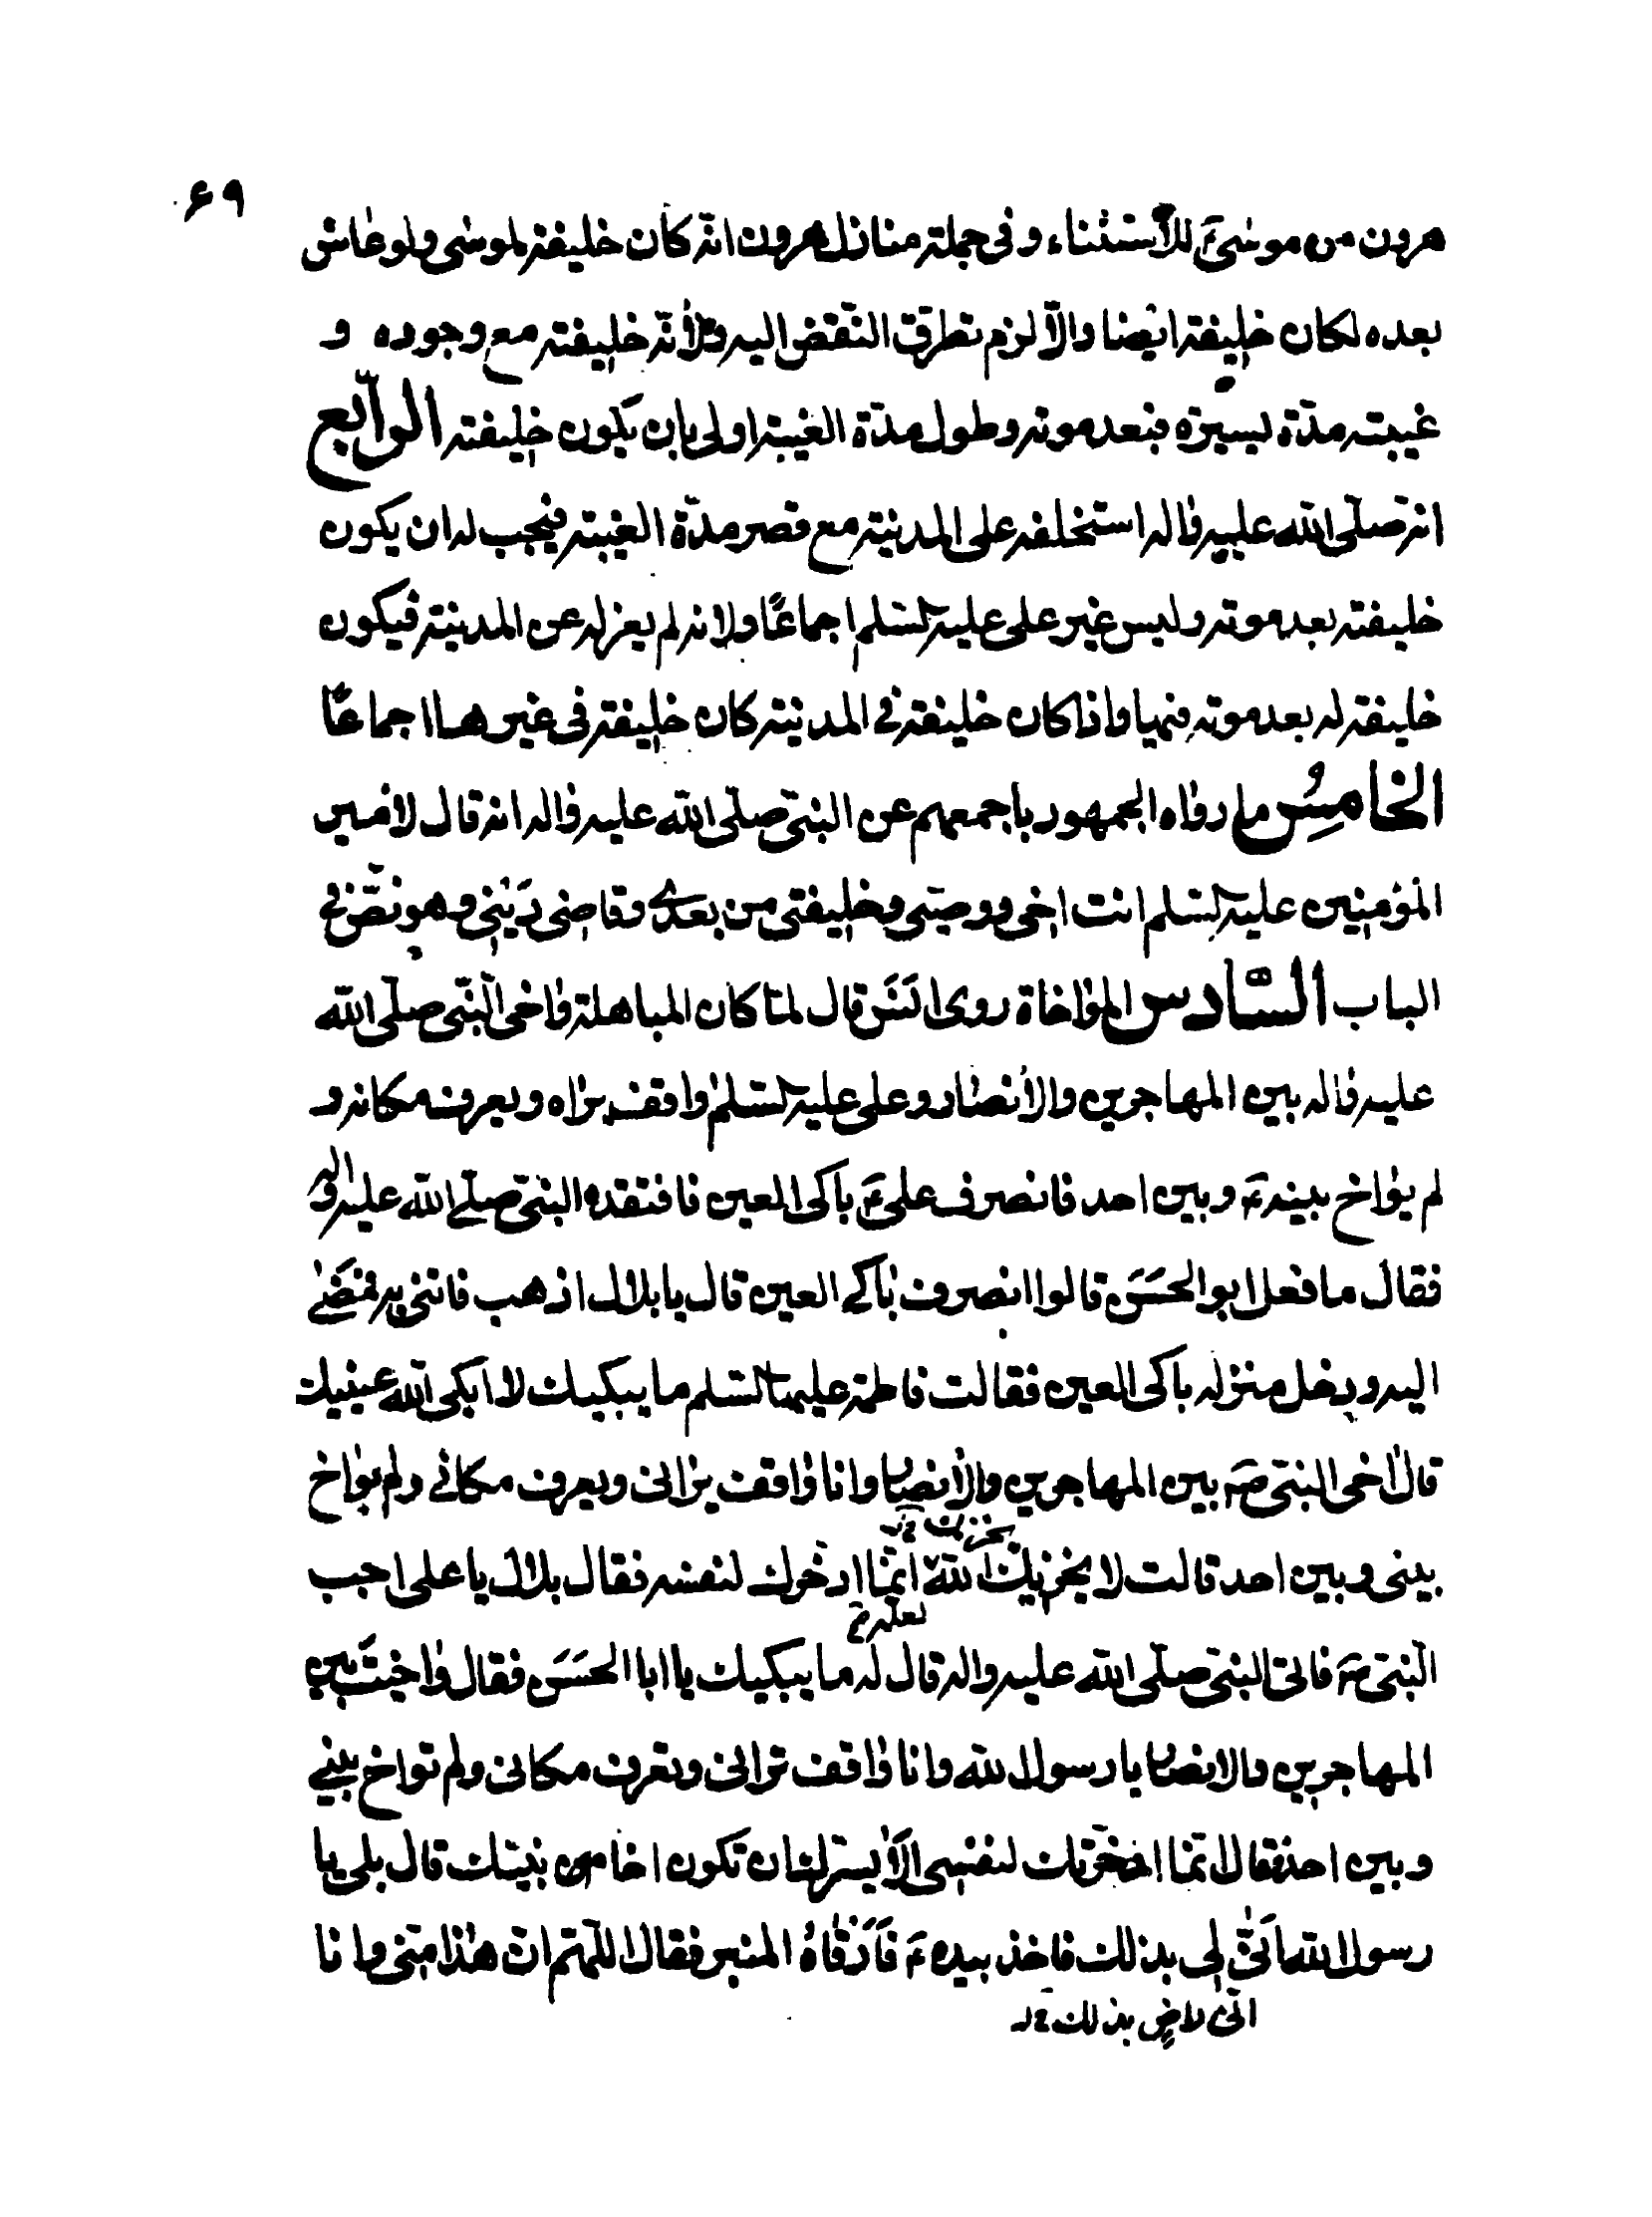 ۶۹
هرون من موسىٰ ع للاستثناء وفى جملة منازل هرون انّه كان خليفة لموسى ولو عاش
بعده لكان خليفة ايضا والّا لزم تطرّق النّقض اليه ولأنّه خليفته مع وجوده و
غيبته مدّة يسيرة فبعد موته وطول مدّة الغيبة اولى بان يكون خليفته الرّابع
انه صلّى الله عليه واله استخلفه على المدينة مع قصر مدّة الغيبة فيجب له ان يكون
خليفته بعد موته وليس غير على عليه السّلم اجماعًا ولانه لم يعزله عن المدينة فيكون
خليفة له بعد موته فيها واذا كان خليفة فى المدينة كان خليفة فى غيرها اجماعًا
الخامسُ ما رواه الجمهور باجمعهم عن النبىّ صلّى الله عليه واله انه قال لامير
المؤمنين عليه السّلم انت اخى ووصيّى وخليفتى من بعدى وقاضى دَينى وهو نصّ فى
الباب السّادس المؤاخاة روى انَسَ قال لمّا كان المباهلة واخى النّبىّ صلّى الله
عليه واله بين المهاجرين والأنصار وعلى عليه السّلم واقف يراه ويعرف مكانه و
لم يؤاخ بينه ع وبين احد فانصرف علىّ ع باكى العين فافتقده النبىّ صلّى الله عليه واله
فقال ما فعل ابو الحسَن قالوا انصرف باكى العين قال يا بلال اذهب فاتنى به فمَضَىٰ
اليه ودخل منزله باكى العين فقالت فاطمة عليها السّلم ما يبكيك لا ابكى الله عينيك
قال اخى النبىّ ص بين المهاجرين والأنصار وانا واقف يرانى ويعرف مكانى ولم يواخ
يحزنك خ‌ل
بينى وبين احد قالت لا يخزيك الله انّما ادّخرك لنفسه فقال بلال يا على اجب
لعله خ
النّبىّ ص فاتى النبىّ صلّى الله عليه واله قال له ما يبكيك يا ابا الحسَن فقال واخيتَ بين
المهاجرين والانصار يا رسول الله وانا واقف ترانى وتعرف مكانى ولم تواخ بينى
وبين احد فقال انّما ادّخرتك لنفسى الَا يسرّك ان تكون اخا نبيّك قال بلى يا
رسول الله انّىٰ لى بذلك فاخذ بيده ع فَاَرْقاهُ المنبر فقال اللّهمّ انّ هٰذا منّى وانا
انّى راضٍ بذلك خ‌ل